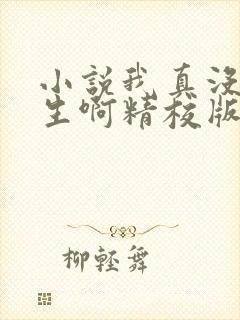 小説我真没
生啊精校版
柳輕舞